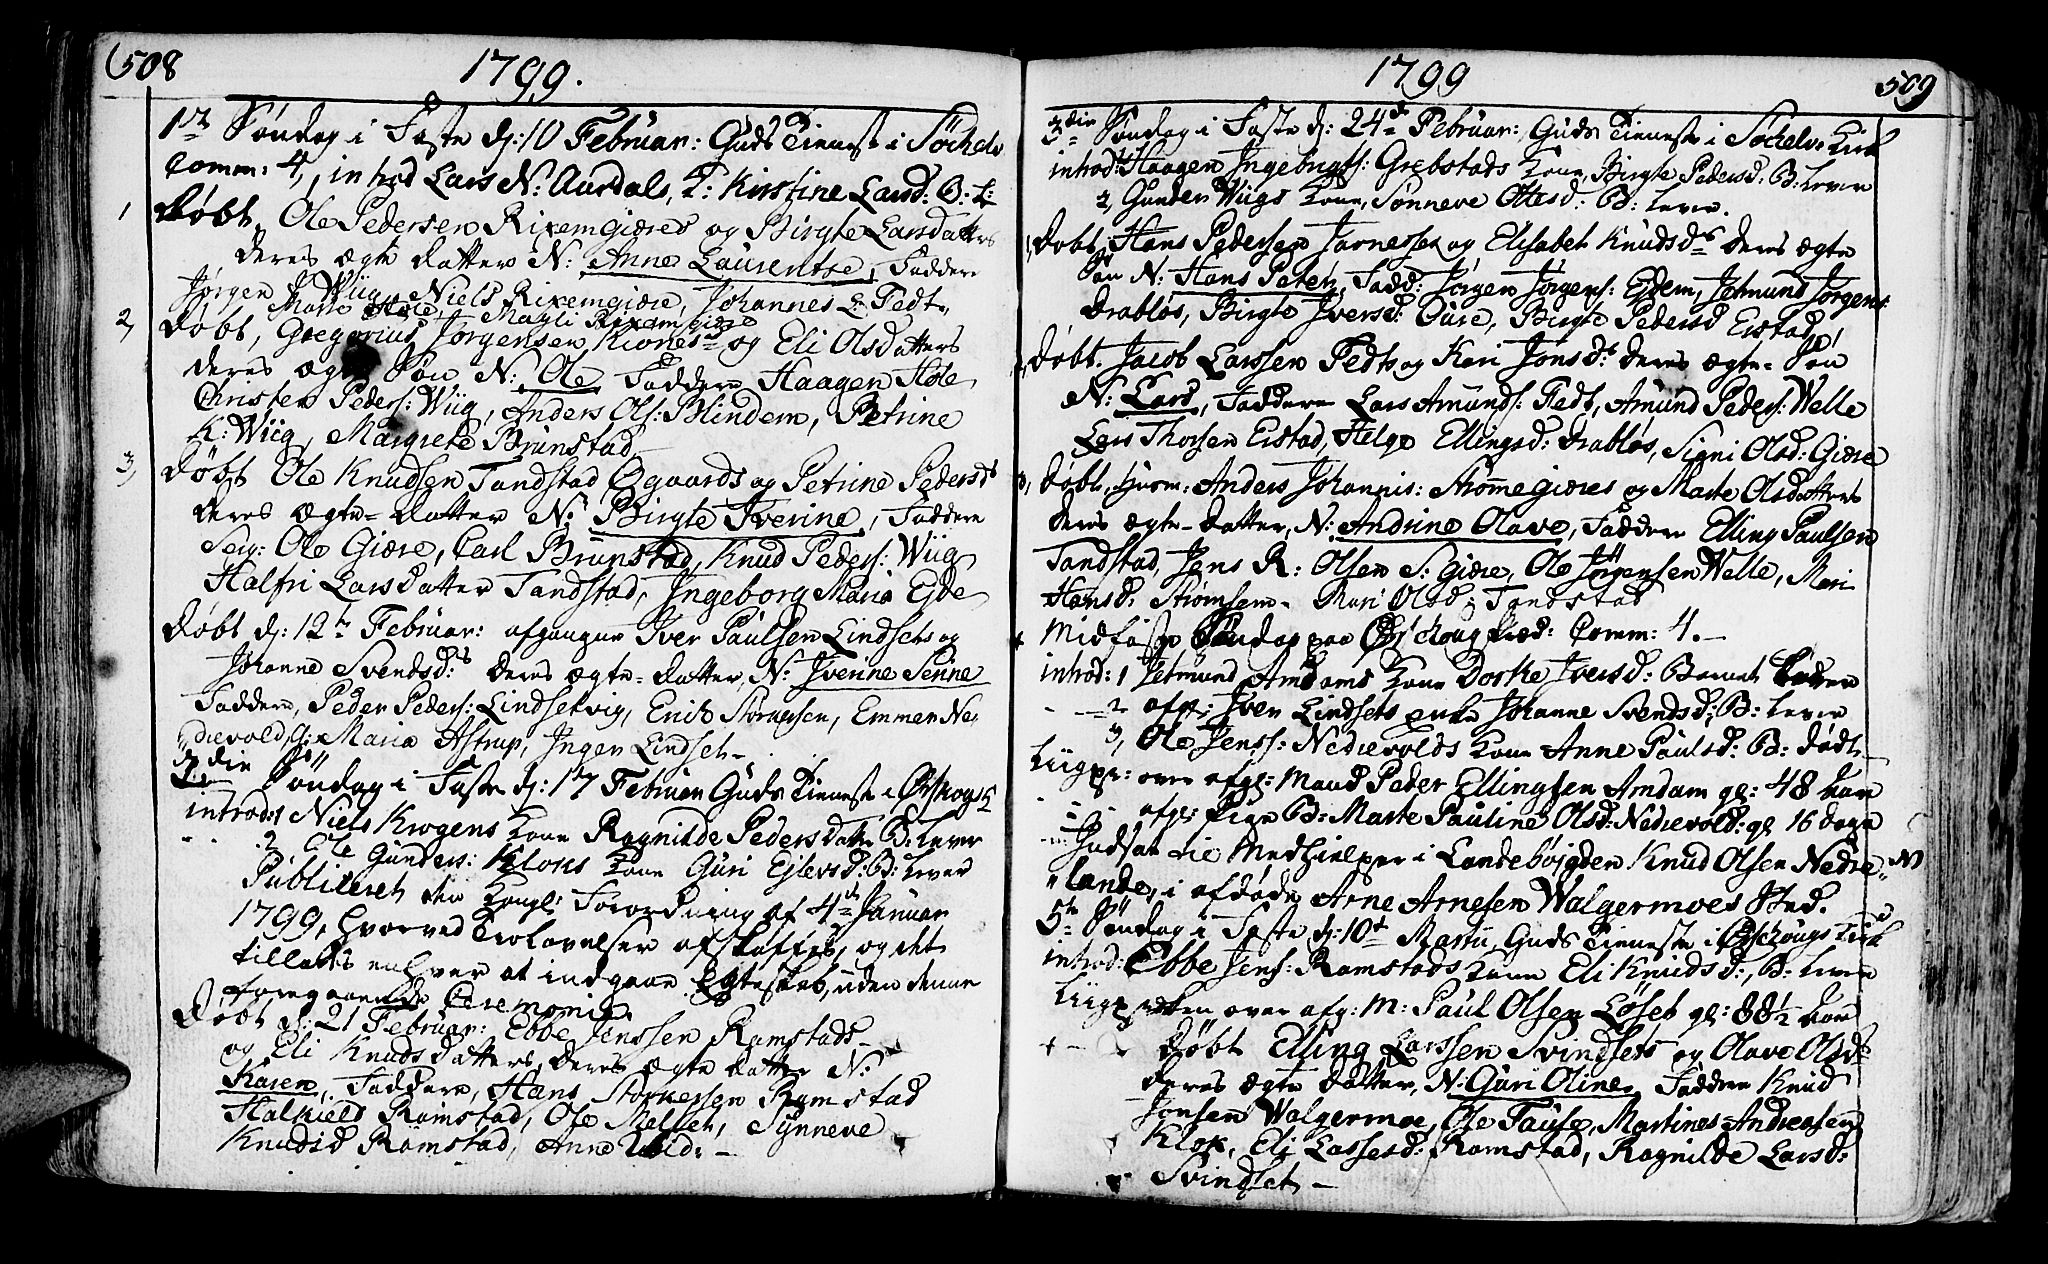 508
1799.
1ste Søndag i Faste d: 10 Februar: Guds Tieneste i Søchelv
Comm: 4, introd Lars N: Aurdals, K: Kirstine Larsd: B: L:
1 Døbt, Ole Pedersen Rixemgiæres og Birgte Larsdatters
deres ægte Datter N: Anne Laurentse, Faddere
Jørgen Wiig, Niels Rixemgiære, Johannes L: Fedt,
Marte Hole, Magli Rixemgiære
2, Døbt, Gregorius Jørgensen Kiones og Eli Olsdatters
deres ægte Søn N: Ole Faddere Haagen Hole
Christen Peders: Wiig, Anders Ols: Blindem, Petrine
K: Wiig, Margrete Brunstad
3, Døbt Ole Knudsen Tandstad Øgaards og Petrine Pedersds
deres ægte Datter N: Birgte Iverine, Faddere
Serg: Ole Giære, Carl Brunstad, Knud Peders: Wiig
Halfri Larsdatter Tandstad, Ingeborg Maria Ejde
Døbt d: 12te Februar: afgangne Iver Paulsen Lindsets og
Johanne Svendsd:s deres ægte Datter, N: Iverine Serine
Faddere, Peder Peders: Lindsetvig, Erich Storupsen, Emmer Ne,,
drevold, Maria Astrup, Inger Lindset
2den Søndag i Faste d: 17 Februar Guds Tieneste i Ørskogs K
introd: 1 Niels Krogens Kone Ragnilde Pedersdatter B: Lever
2 Ole Gunders: Kloks Kone Guri Ejlersd: B: Lever
Publiceret den Kongl: Forordning af 4de Januar
1799, hvorved Trolovelser afskaffes, og det
tillades enhver at indgaae Egteskab, uden denne
foregaaende Ceremonie
Døbt d: 21 Februar: Ebbe Jenssen Ramstads
og Eli Knudsdatters, deres ægte Datter N:
Karen, Faddere, Hans Storkersen Ramstad
Halkield Ramstad, Ole Melset, Synneve
Knudsd Ramstad, Anne
1799
509
3die Søndag i Faste d: 24de Februar: Guds Tieneste i Søchelv: Kirk
introd: Haagen Ingebrigts: Grebstads Kone, Birgte Pedersd: B: Lever
2, Gunder Wiigs Kone, Sønneve Ottesd: B: Lever.
1, Døbt Hans Pedersen Jarnesset og Elisabet Knudsdr deres ægte
Søn N: Hans Peter, Fadd: Jørgen Jørgens: Ejdem, Jetmund Jørgens:
Drabløs, Birgte Iversd: Oure, Birgte Pedersd Erstad
Døbt. Jacob Larssen Fedts og Kari Jonsdr deres ægte Søn
N: Lars, Faddere Lars Amunds: Fedt, Amund Peders: Welle
Lars Thorsen Erstad, Helge Ellingsd: Drabløs, Signi Olsd: Giære
3, Døbt, hiem: Anders Johannis: Strømegiæres og Marte Olsdatters
deres ægte Datter, N: Andrine Olave, Faddere Elling Paulsen
Tandstad, Jens R: Olsen S: Giære, Ole Jørgensen Welle, Mari
Hansd: Strømsem Mari Olsd: Tandstad
Midfaste Søndag paa Ørschoug Præd: Comm: 4.
introd: 1 Jetmund Amdams Kone Dorte Iversd: Barnet Lever
2 afg: Iver Lindsets enke Johanne Svendsd: B: Lever
3, Ole Jenss: Nedrevolds Kone Anne Paulsd: B: Dødt
Liigpr: over afgl: Mand Peder Ellingsen Amdam gl: 48 Aar
afgl: Pige B: Marte Pauline Olsd: Nedrevold: gl 16 Dage
Indsat til Medhielper i Landebøjgden Knud Olsen Nedre,,
lande, i afdøde Arne Arnesen Walgermoes Sted.
5te Søndag i Faste d: 10de Martii Guds Tieneste i Ørschougs Kirk
introd: Ebbe Jens: Ramstads Kone Eli Knudsd:, B: Lever
Liigprædiken over afg: M: Paul Olsen Løset gl: 88½ Aar
Døbt Elling Larssen Svindsets og Olave Olsds
deres ægte Datter, N: Guri Oline, Faddere Knud
Jonsen Walgermoe, Ole Tause, Martines Andreasen
Klok, Eli Lassesd: Ramstad, Ragnilde Larsd:
Svindset